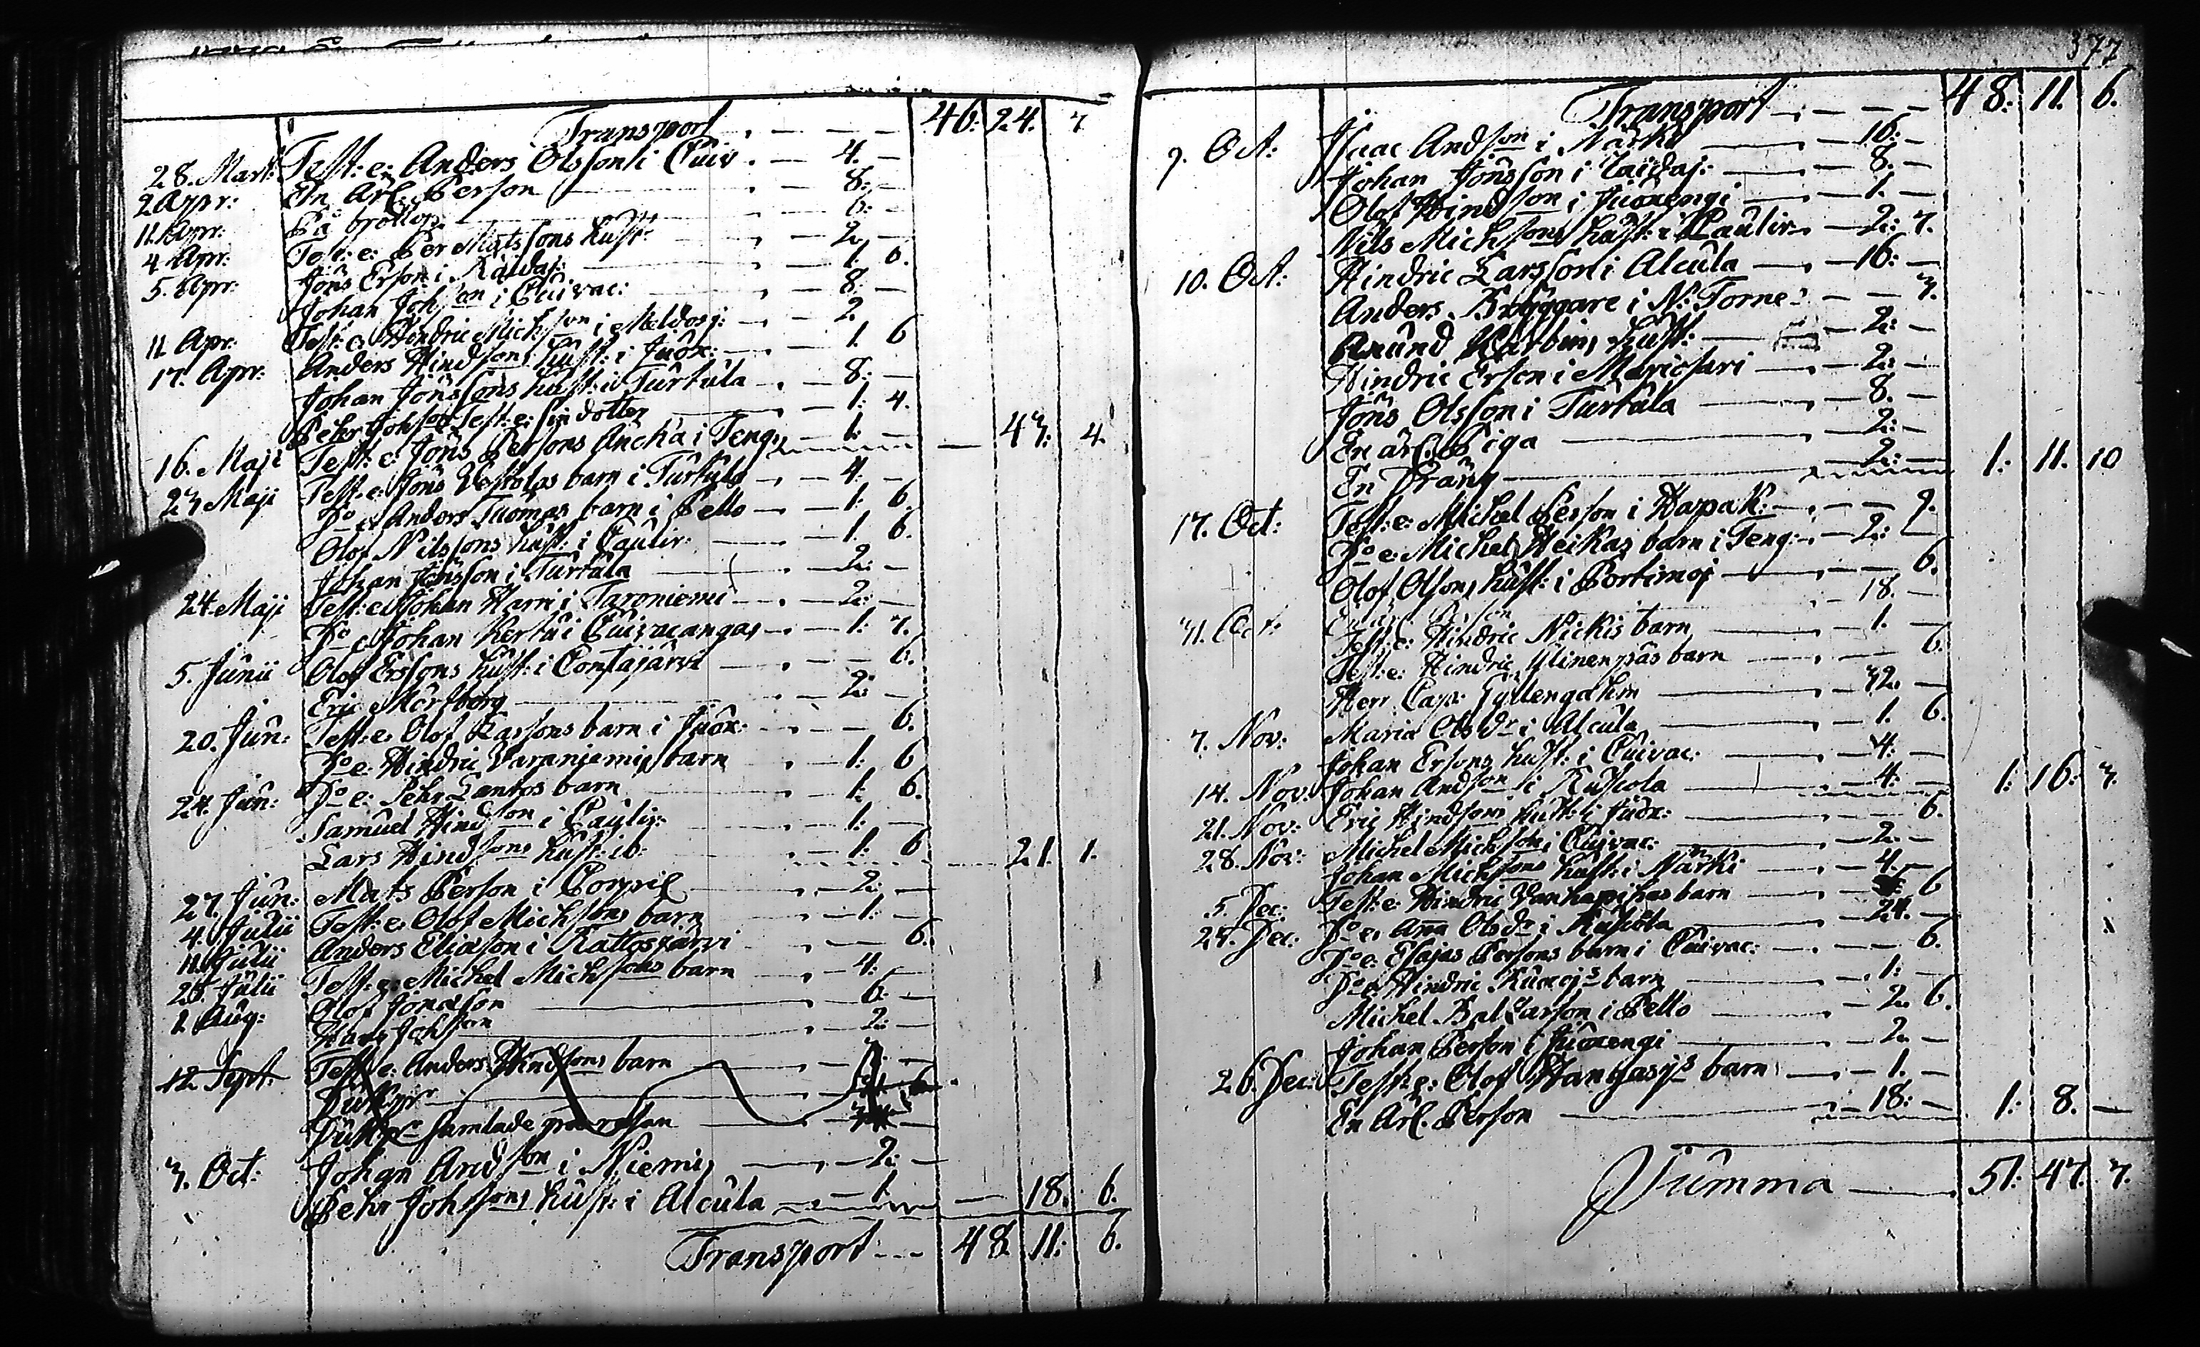 Transport . — — — 46: 24. 7
28. Mart: Test: e: Anders Olsson i Cuiv . — 4. —
2 Apr: En Arl. Person — 8: —
11. Apr: På bröllop — 6: —
4 Apr: Test: e: Per Matssons hust: — 2. —
5. Apr: Jöns Erson i Kaidaj: — 1. 6.
Johan Joh:son i Cuivac: — 8: —
11 Apr: Test: e: Hindric Mich:son i Meldosj: — 2.
17. Apr: Anders Hind:sons hust: i Juox: — 1. 6
Johan Jönssons hust: i Turtula — 8: —
Pehr Johsos Test: e: sin dotter — 1: 4.
16. Maji Test: e: Jöns Persons Ancka i Teng: — 1: — 47: 4.
23 Maji Test: e: Jöns Vestolas barn i Turtula — 4: —
Do e: Anders Tuomas barn i Pello — 1: 6.
Olof Nilssons hust: i Paulir: — 1. 6.
Johan Jönsson i Turtula — 2: —
24. Maji Test: e: Johan Harri i Taroniemi — 2: —
Do e: Johan Kertu i Cuivacangas — 1: 7.
5. Junii Olof Ersons hust: i Contajärvi — 6.
Eric Mörtberg — 2: —
20. Jun: Test: e: Olof Larsons barn i Juox: — 6.
Do e: Hindric Varanjemis barn — 1: 6
24. Jun: Do e: Pehr Lantos barn — 1: 6.
Samuel Hind:son i Paulir: — 1: —
Lars Hind:sons hust: ib: — 1: 6 21. 1.
27. Jun: Mats Person i Corpil — 2: —
4. Julii Test: e: Olof Mich:sons barn — 1: —
11. Julii Anders Eliason i Rattosjärvi — 6.
25. Julii Test: e: Michel Mich:sons barn — 4: —
1 Aug: Olof Jonason — 6: —
Hans Joh:son — 2: —
12. Sept: Test: e: Anders Hindsons barn
samlade på resan
3. Oct: Johan And:son i Niemis — 2: —
Pehr Joh:sons hust: i Alcula — 1. — 18. 6.
Transport — 48 11: 6.
377
Transport — 48: 11. 6.
9. Oct: Isaac And:son i Närki — 16: —
Johan Jönsson i Caidaj: — 8: —
Olof Hind:son i Juoxengi — 1. —
Nils Mich:sons hust: i Paulir: — 2: 7.
10. Oct: Hindric Larsson i Alcula — 16: —
Anders Bryggare i N: Torne: — 7.
Amund Karbins hust: — 2: —
Hindric Erson i Mariosari — 2: —
Jöns Olsson i Turtula — 8. —
En ärl: Piga — 2: —
En Dräng — 2: — 1: 11. 10
17. Oct: Test: e: Michel Person i Hapak: — 9.
Do e: Michel Heikas barn i Teng: — 2: —
Olof Olsons hust: i Portimoj — 6.
18. —
31. Oct: Test: e: Hindric Nickis barn — 1. —
Test: e: Hindric Ylinenpäs barn — 6.
Herr Cap: Gyllengahm — 32. —
7. Nov: Maria Ols Dr i Alcula — 1. 6.
Johan Ersons hust: i Cuivac: — 4: —
14. Nov: Johan And:son i Ruskola — 4: — 1: 16: 3.
21. Nov: Eric Hindsons hust: i Juox: — 6.
28. Nov: Michel Mich:son i Cuivac: — 2. —
Johan Mich:sons hust: i Närki — 4. —
5. Dec: Test: e: Hindric Vanhapihas barn — 6
25. Dec: Do e: Anna Ols dr i Ruskola — 24. —
Do e: Esajas Persons barn i Cuivac: — 6.
Do e: Hindric Kumojs barn — 1: —
Michel Baltzarson i Pello — 2. 6.
Johan Person i Juoxengi — 2. —
26. Dec: Test: e: Olof Kangasys barn — 1. —
En Ärl. Person — 18: — 1: 8. —
Summa — 51: 47. 7.